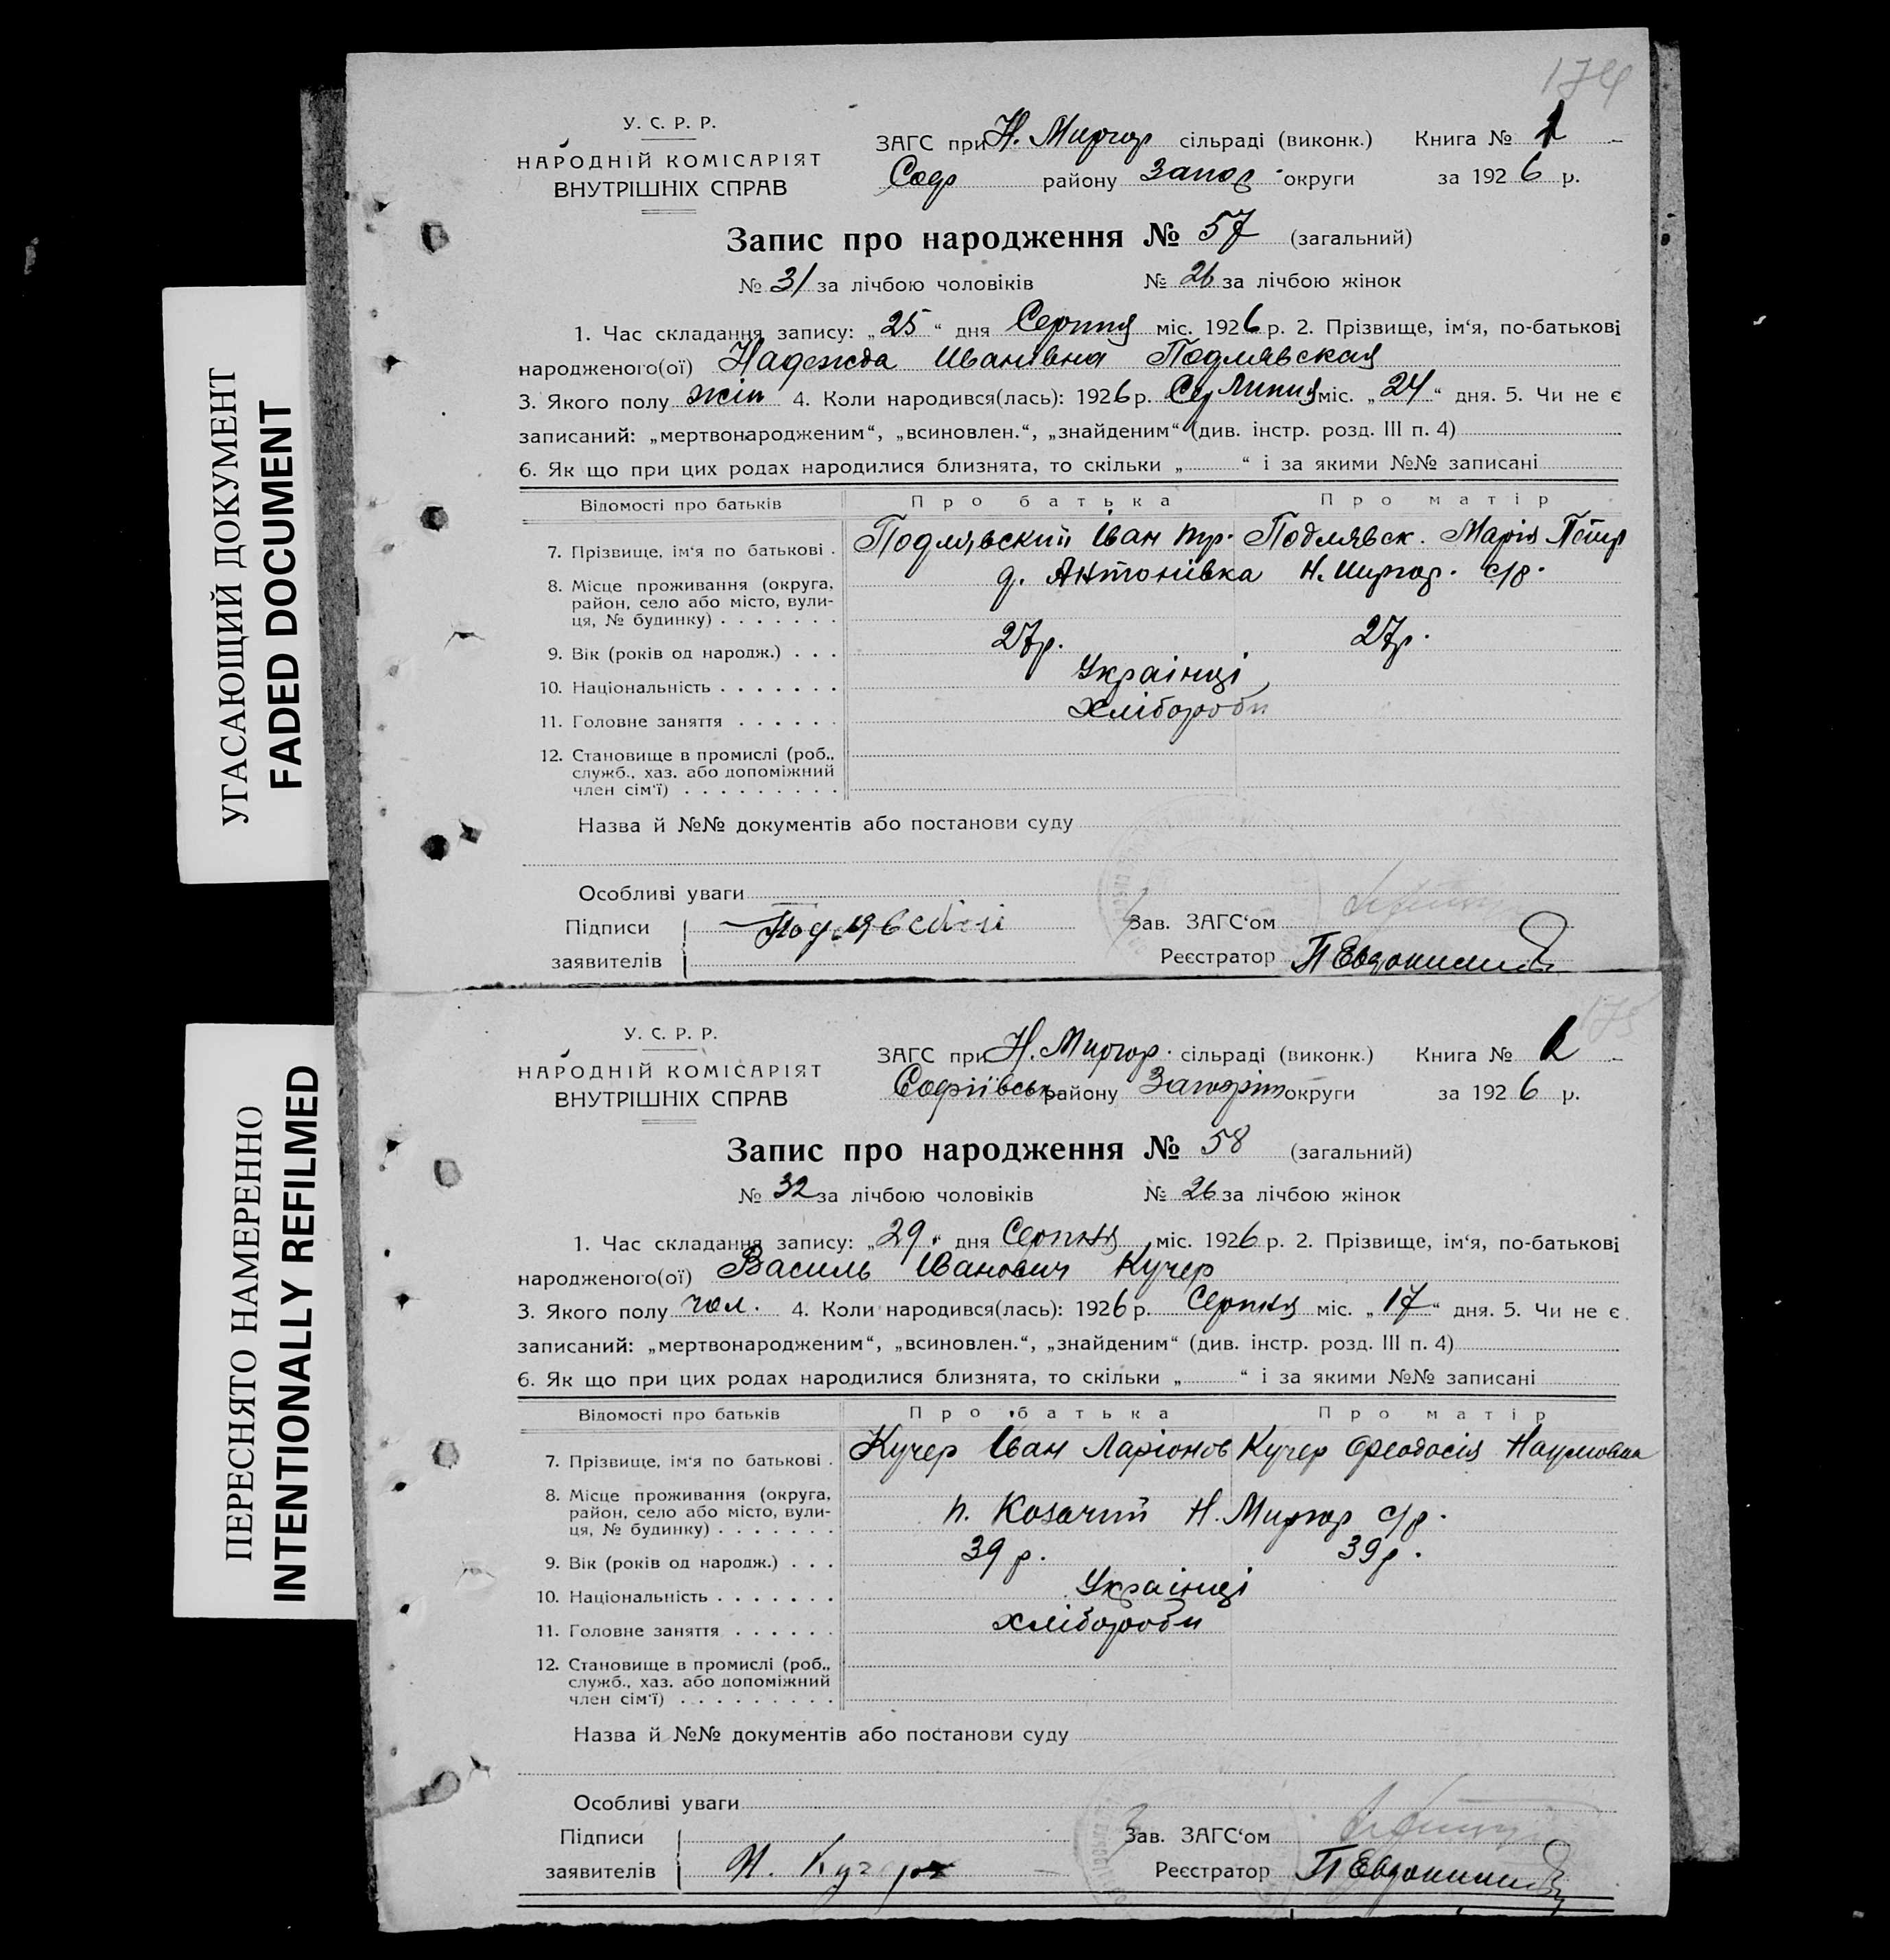 174
У. С. Р. Р.
НАРОДНІЙ КОМІСАРІЯТ
ВНУТРІШНІХ СПРАВ
ЗАГС при Н. Миргор сільраді (виконк.) Книга № 1
Соф району Запор округи за 1926 р.
Запис про народження № 57 (загальний)
№ 31 за лічбою чоловіків № 26 за лічбою жінок
1. Час складання запису: „25“ дня Серпня міс. 1926 р. 2. Прізвище, ім‘я, по-батькові
народженого(ої) Надежда Иванівна Подлявская
3. Якого полу жін 4. Коли народився(лась): 1926 р. Сер Липня міс. „24“ дня. 5. Чи не є
записаний: „мертвонародженим“, „всиновлен.“, „знайденим“ (див. інстр. розд. III п. 4)
6. Як що при цих родах народилися близнята, то скільки „ “ і за якими №№ записані
Відомості про батьків Про батька Про матір
7. Прізвище, ім‘я по батькові . Подлявский Іван Тр. Подлявск. Марія Петр
8. Місце проживання (округа, д. Антонівка Н. Миргор. с/р.
район, село або місто, вули-
ця, № будинку) . . . . . . .
9. Вік (років од народж.) . . . 27р. 27р.
10. Національність . . . . . . . Українці
11. Головне заняття . . . . . . Хлібороби
12. Становище в промислі (роб.,
служб., хаз. або допоміжний
член сім‘ї) . . . . . . . . .
Назва й №№ документів або постанови суду
Особливі уваги
Підписи Зав. ЗАГС‘ом
заявителів Реєстратор П Евдокимов
УГАСАЮЩИЙ ДОКУМЕНТ
FADED DOCUMENT
175
У. С. Р. Р.
НАРОДНІЙ КОМІСАРІЯТ
ВНУТРІШНІХ СПРАВ
ЗАГС при Н. Миргор. сільраді (виконк.) Книга № 1
Софіївськ району Запоріж округи за 1926 р.
Запис про народження № 58 (загальний)
№ 32 за лічбою чоловіків № 26 за лічбою жінок
1. Час складання запису: „29“ дня Серпня міс. 1926 р. 2. Прізвище, ім‘я, по-батькові
народженого(ої) Василь Іванович Кучер
3. Якого полу чол. 4. Коли народився(лась): 1926 р. Серпня міс. „17“ дня. 5. Чи не є
записаний: „мертвонародженим“, „всиновлен.“, „знайденим“ (див. інстр. розд. III п. 4)
6. Як що при цих родах народилися близнята, то скільки „ “ і за якими №№ записані
Відомості про батьків Про батька Про матір
7. Прізвище, ім‘я по батькові . Кучер Іван Ларіонов Кучер Феодосія Наумовна
8. Місце проживання (округа,
район, село або місто, вули- п. Козачий Н. Миргор с/р.
ця, № будинку) . . . . . . .
9. Вік (років од народж.) . . . 39 р. 39 р.
10. Національність . . . . . . . Українці
11. Головне заняття . . . . . . хлібороби
12. Становище в промислі (роб.,
служб., хаз. або допоміжний
член сім‘ї) . . . . . . . . .
Назва й №№ документів або постанови суду
Особливі уваги
Підписи Зав. ЗАГС‘ом
заявителів И. Кучер Реєстратор П Евдокимов
ПЕРЕСНЯТО НАМЕРЕННО
INTENTIONALLY REFILMED